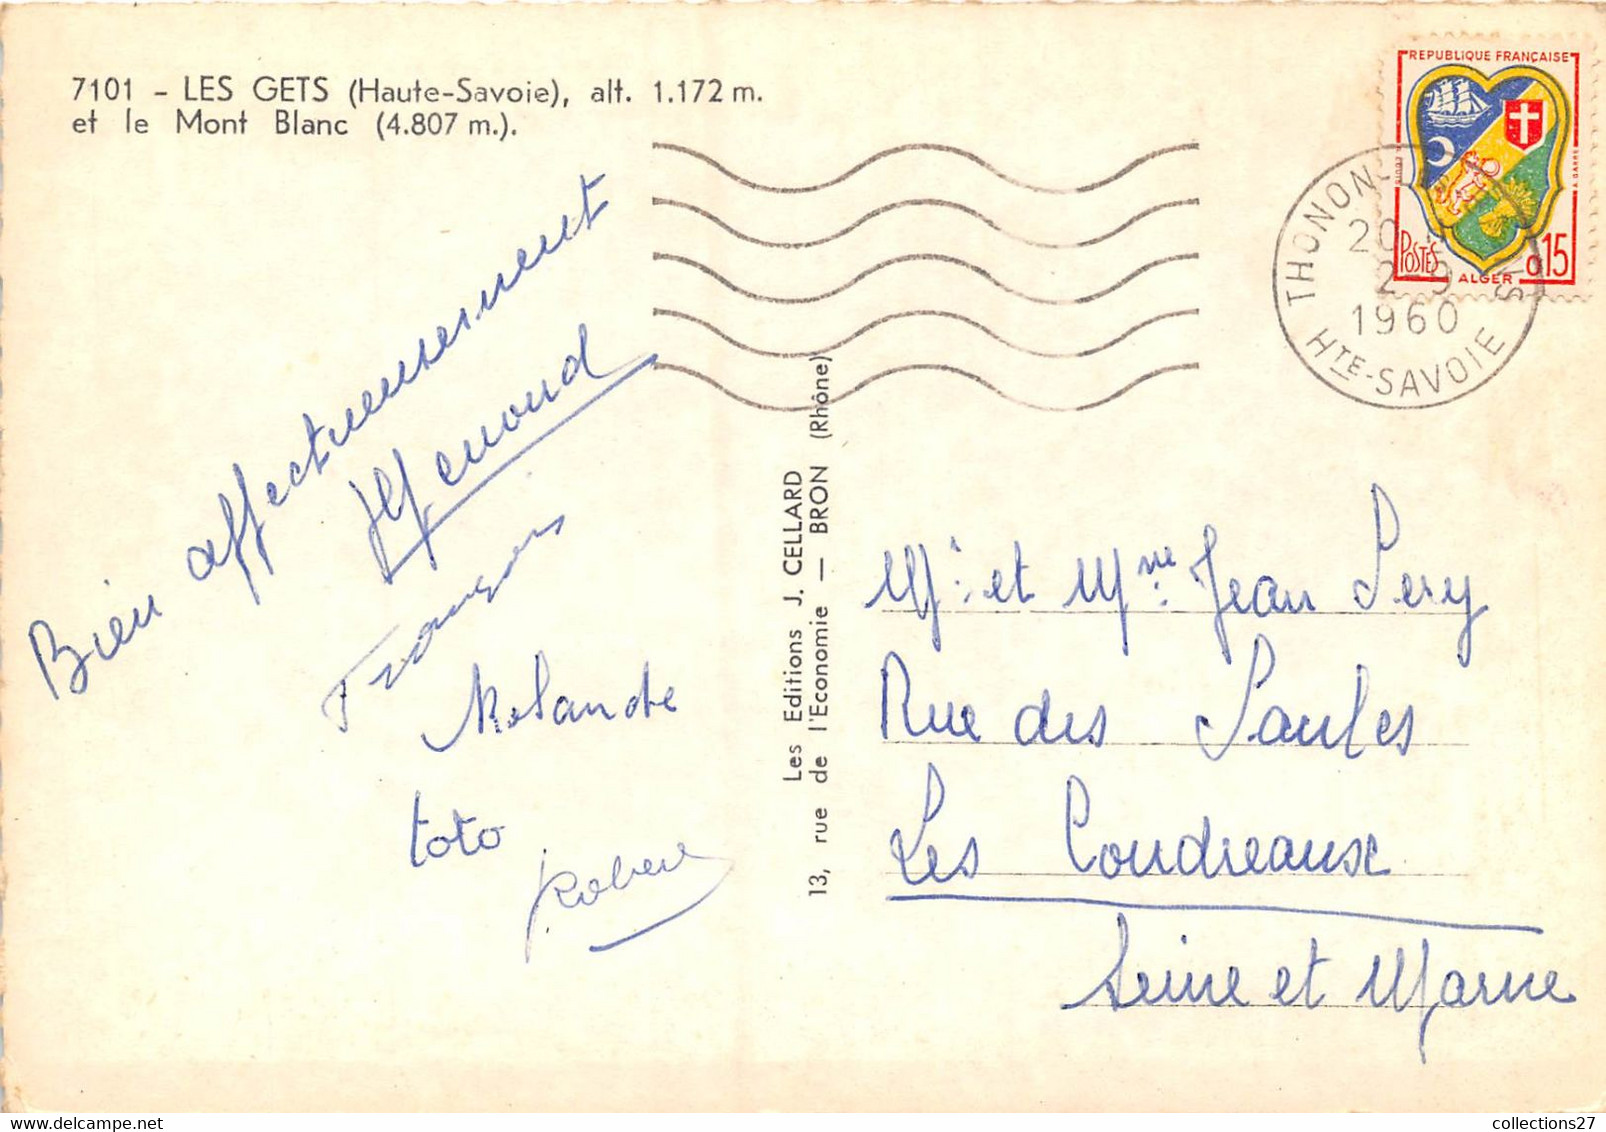 7101 - LES GETS (Haute-Savoie), alt. 1.172 m.
et le Mont Blanc (4.807 m.).
Bien affectueusement
François
toto
Robert
Les Editions J. CELLARD
13, rue de l'Economie — BRON (Rhône)
REPUBLIQUE FRANÇAISE
POSTES
ALGER
0,15
THONON-
20
2-9
1960
HTE-SAVOIE
Mr. et Mme. Jean Pery
Rue des Saules
Les Coudreaux
Seine et Marne
collections27